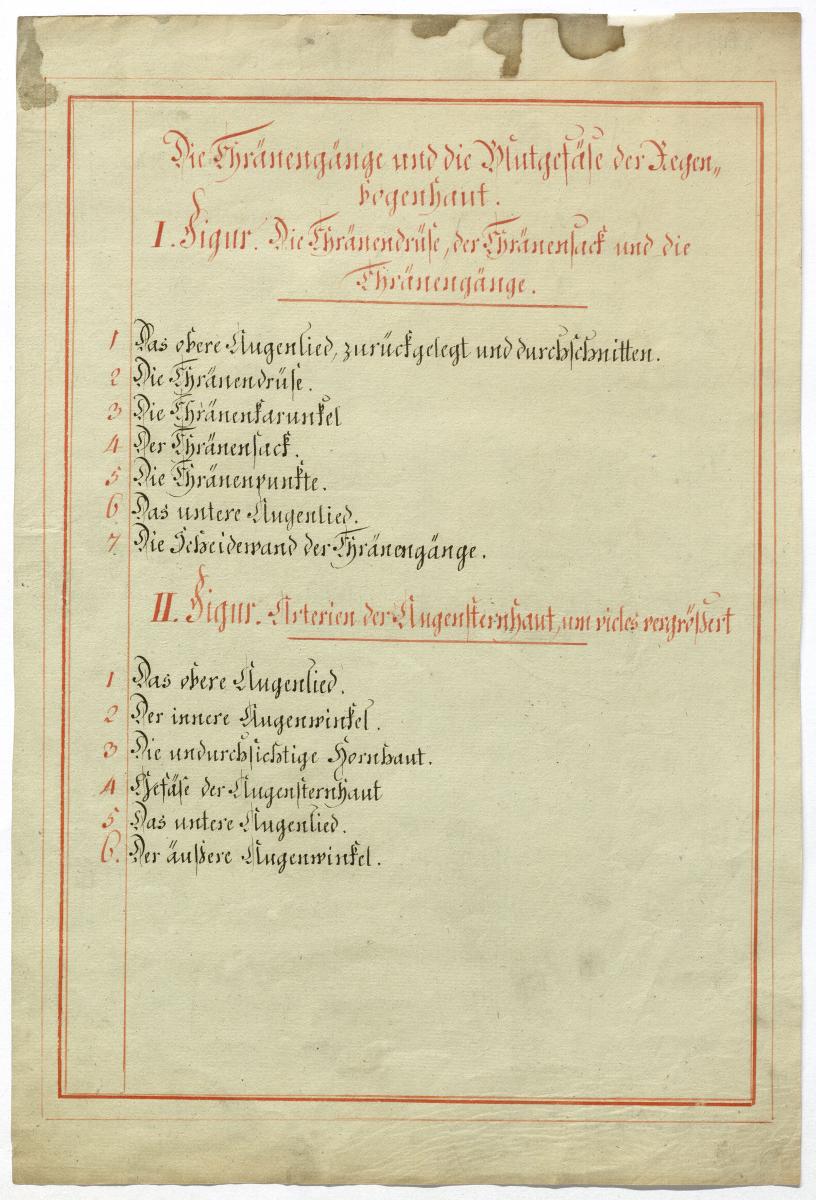 Die Thränengänge und die Blutgefäse der Regen„
bogenhaut.
I. Figur. Die Thränendrüse, der Thränensack und die
Thränengänge.
1 Das obere Augenlied, zurückgelegt und durchschnitten.
2 Die Thränendrüse.
3 Die Thränenkarunkel
4 Der Thränensack.
5 Die Thränenpunkte.
6 Das untere Augenlied.
7. Die Scheidewand der Thränengänge.
II. Figur. Arterien der Augensternhaut, um vieles vergrößert
1 Das obere Augenlied.
2 Der innere Augenwinkel.
3 Die undurchsichtige Hornhaut.
4 Gefäse der Augensternhaut
5 Das untere Augenlied.
6. Der äußere Augenwinkel.